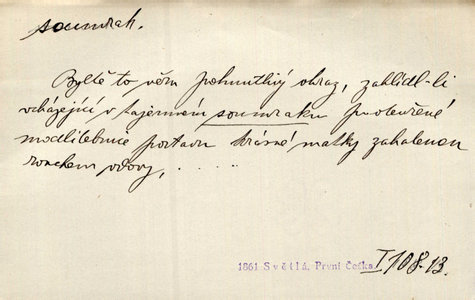 soumrak.
Bylť to věru pohnutlivý obraz, zahlídl-li
vcházející v tajemném soumraku protěvřené
modlitebnice postavu krásné matky zahalenou
rouchem vdovy, . . . . .
1861 Světlá, První Češka I 108-13.